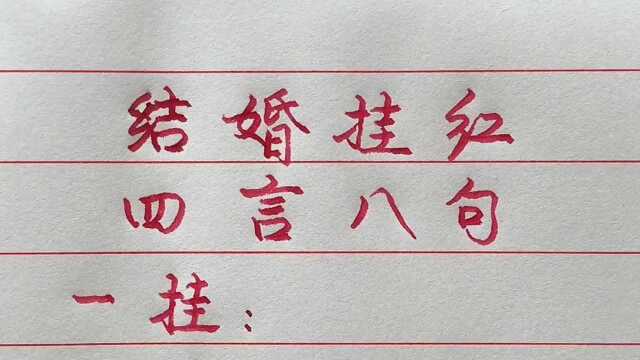 结婚挂红
四言八句
一挂：